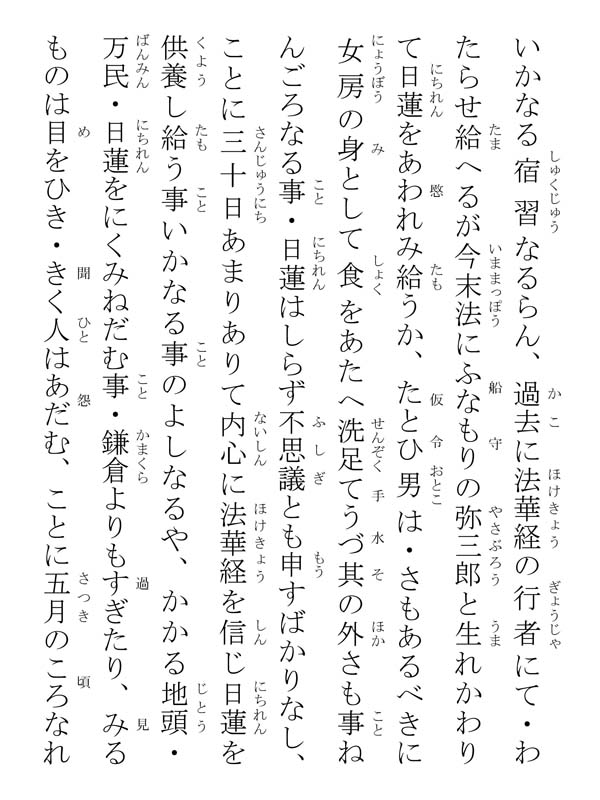 いかなる宿習なるらん、過去に法華経の行者にて・わ
たらせ給へるが今末法にふなもりの弥三郎と生れかわり
て日蓮をあわれみ給うか、たとひ男は・さもあるべきに
女房の身として食をあたへ洗足てうづ其の外さも事ね
んごろなる事・日蓮はしらず不思議とも申すばかりなし、
ことに三十日あまりありて内心に法華経を信じ日蓮を
供養し給う事いかなる事のよしなるや、かかる地頭・
万民・日蓮をにくみねだむ事・鎌倉よりもすぎたり、みる
ものは目をひき・きく人はあだむ、ことに五月のころなれ